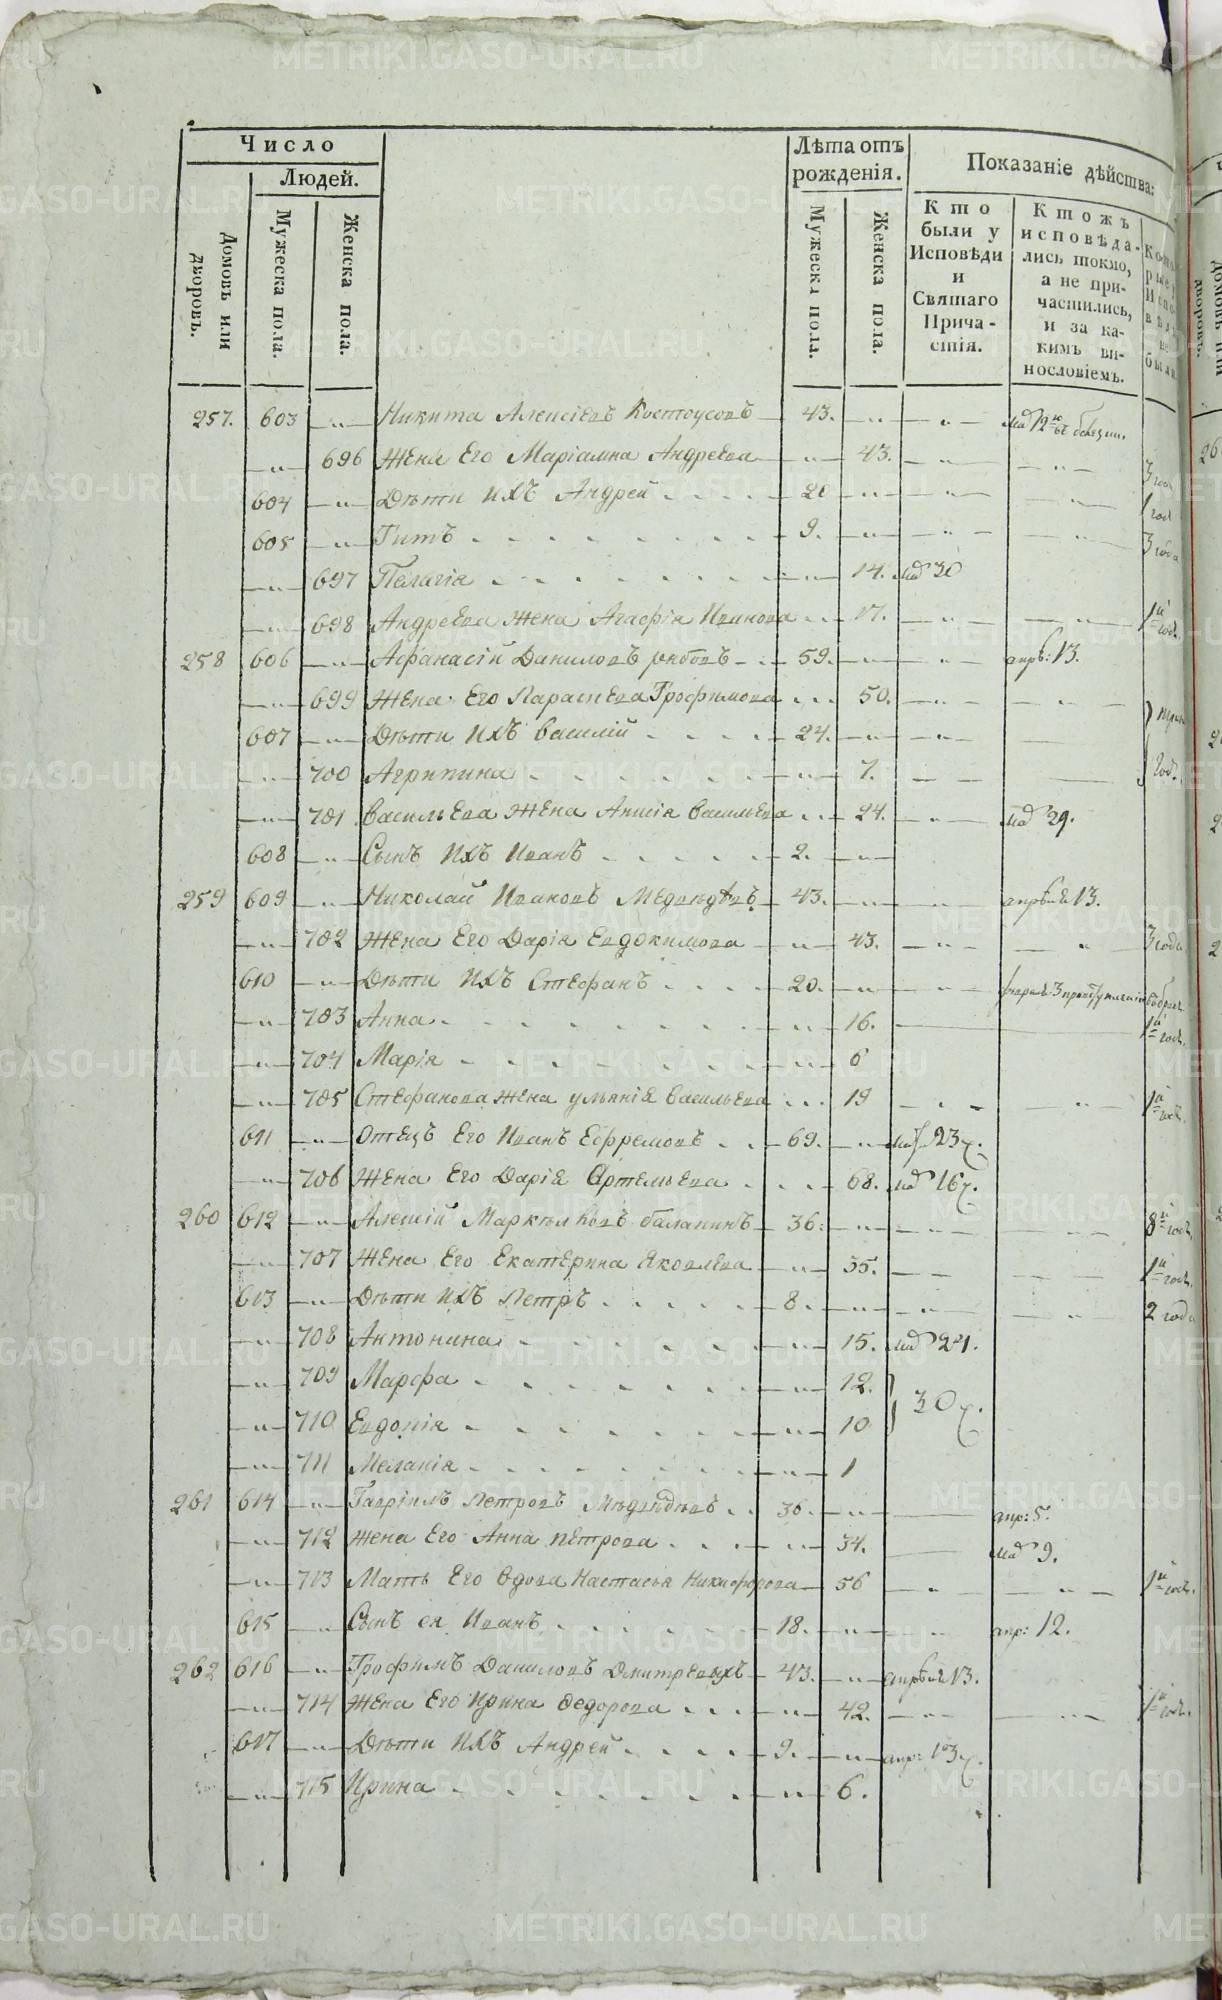 Число
Людей.
Домовъ или дворовъ.
Мужеска пола.
Женска пола.
Лѣта отъ рожденія.
Мужеска пола.
Женска пола.
Показаніе дѣйства:
Кто были у Исповѣди и Святаго Причастія.
Ктожъ исповѣдались токмо, а не причастились, и за какимъ винословіемъ.
257. 603 Никита Алексіевъ Костоусовъ 43.
696 Жена Его Маріамна Андреева 43.
604 Дѣти ихъ Андрей 20
605 Титъ 9. 3 года
697 Пелагія 14. 30
698 Андреева жена Агафія Иванова 17.
258 606 Афанасій Даниловъ рябовъ 59. 13.
699 Жена Его Параскева Трофимова 50.
607 Дѣти ихъ Василій 24.
700 Агрипина 7.
701 Васильева Жена Анисія Васильева 24. 29.
608 Сынъ ихъ Иванъ 2.
259 609 Николай Ивановъ Медвѣдевъ 43. 13.
702 Жена Его Дарія Евдокимова 43. 3 года
610 Дѣти ихъ Стефанъ 20.
703 Анна 16.
704 Марія 6
705 Стефанова жена улянія Васильева 19
611 Отецъ Его Иванъ Ефремовъ 69. 23
706 Жена Его Дарія Артемьева 68. 16
260 612 Алексій Маркѣловъ балакинъ 36.
707 Жена Его Екатерина Яковлева 35.
613 Дѣти ихъ Петръ 8. 2 года
708 Антонина 15. 21.
709 Марфа 12.
710 Евдокія 10 30
711 Меланія 1
261 614 Гавріилъ Петровъ Мѣдвѣдѣвъ 36. апр: 5.
712 жена Его Анна петрова 34. 9.
713 Мать Его вдова Настасья Никифорова 56
615 Сынъ ея Иванъ 18. апр: 12.
262 616 Трофимъ Даниловъ Дмитревыхъ 43. 13.
714 Жена Его Ирина Федорова 42.
617 Дѣти ихъ Андрей 9. апр: 13
715 Ирина 6.
METRIKI.GASO-URAL.RU